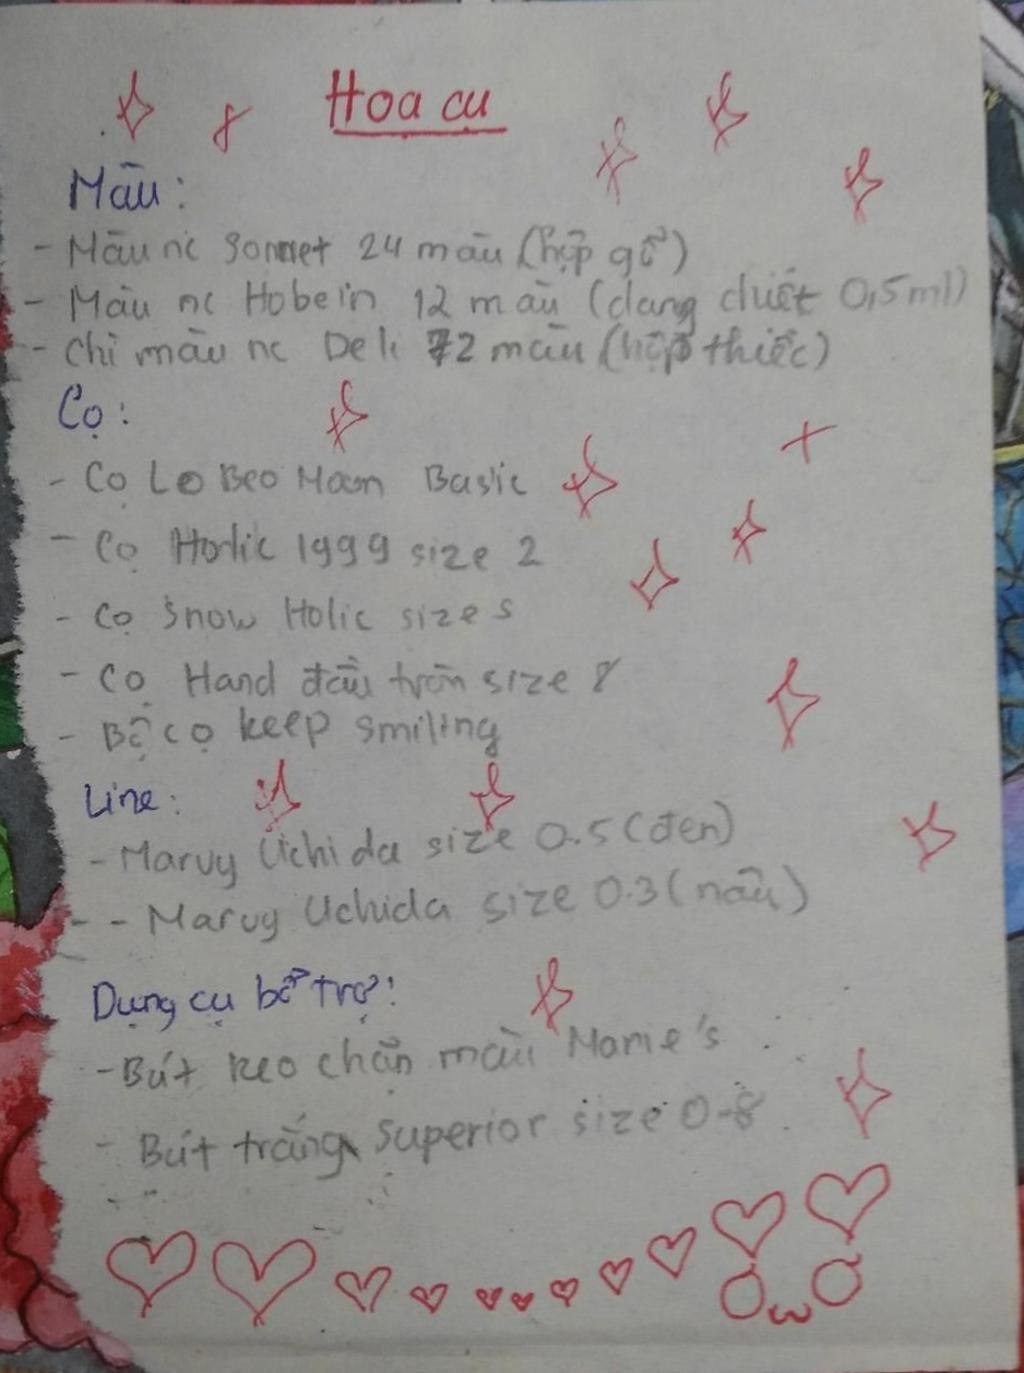 Hoạ cụ
Màu:
- Màu nc Sonnet 24 màu (hộp gỗ)
- Màu nc Hobein 12 màu (dạng chiết 0,5ml)
- Chì màu nc Deli 72 màu (hộp thiếc)
Cọ:
- Cọ Lo Beo Moon Basic
- Cọ Horlic 1999 size 2
- Cọ Snow Holic size s
- Cọ Hand đầu tròn size 8
- Bộ cọ keep smiling
Line:
- Marvy Uchida size 0.5 (đen)
- - Marvy Uchida size 0.3 (nâu)
Dụng cụ bổ trợ:
- Bút keo chặn màu Marie's
- Bút trắng Superior size 0-8
OwO